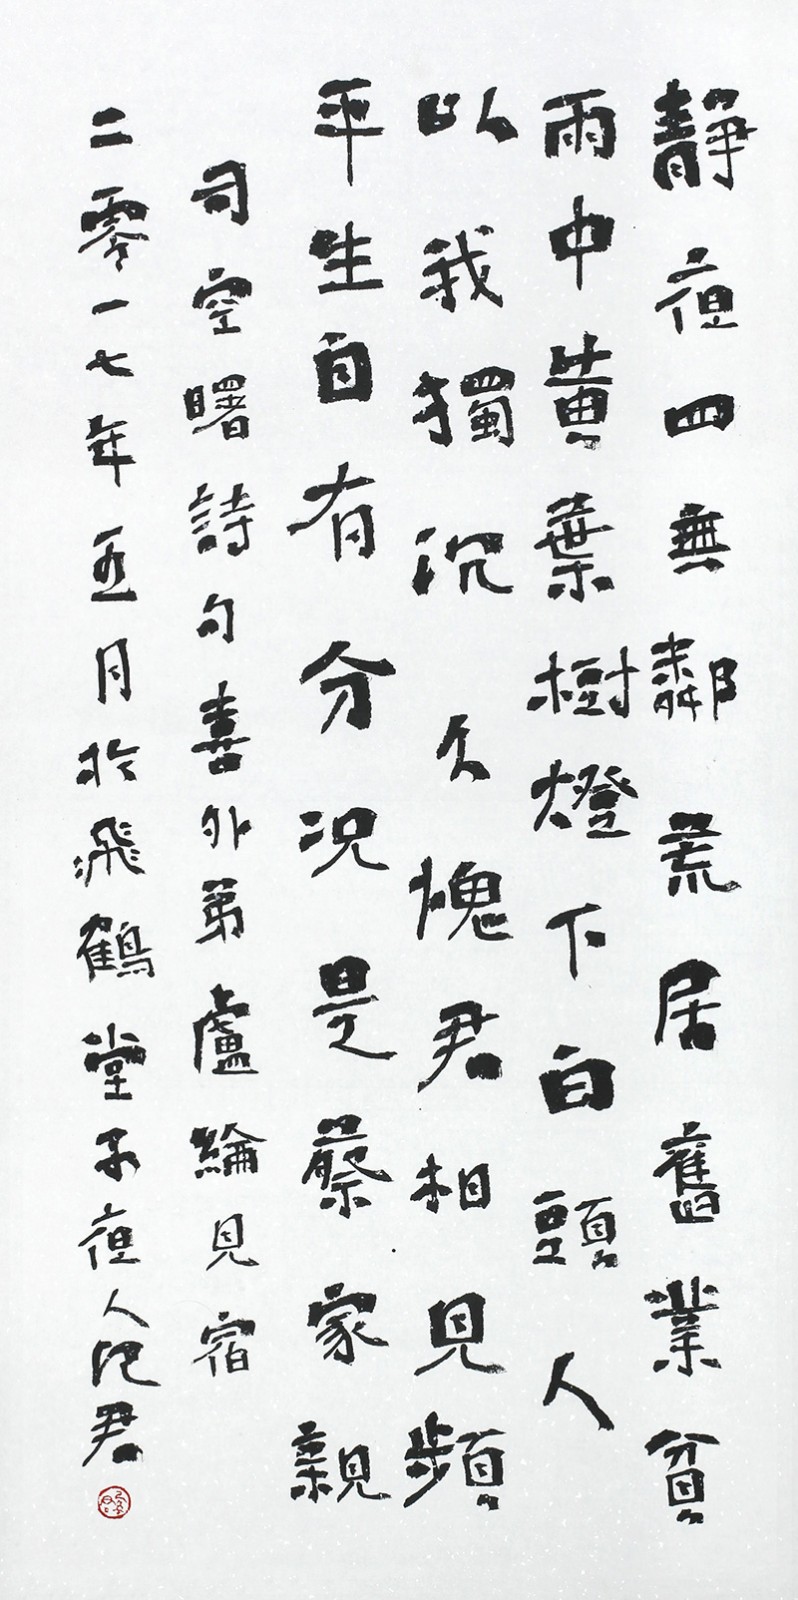 靜夜四無鄰荒居舊業貧
雨中黃葉樹燈下白頭人
以我獨沉久愧君相見頻
平生自有分況是蔡家親
司空曙詩句喜外弟盧綸見宿
二零一七年五月於飛鶴堂子夜人從君